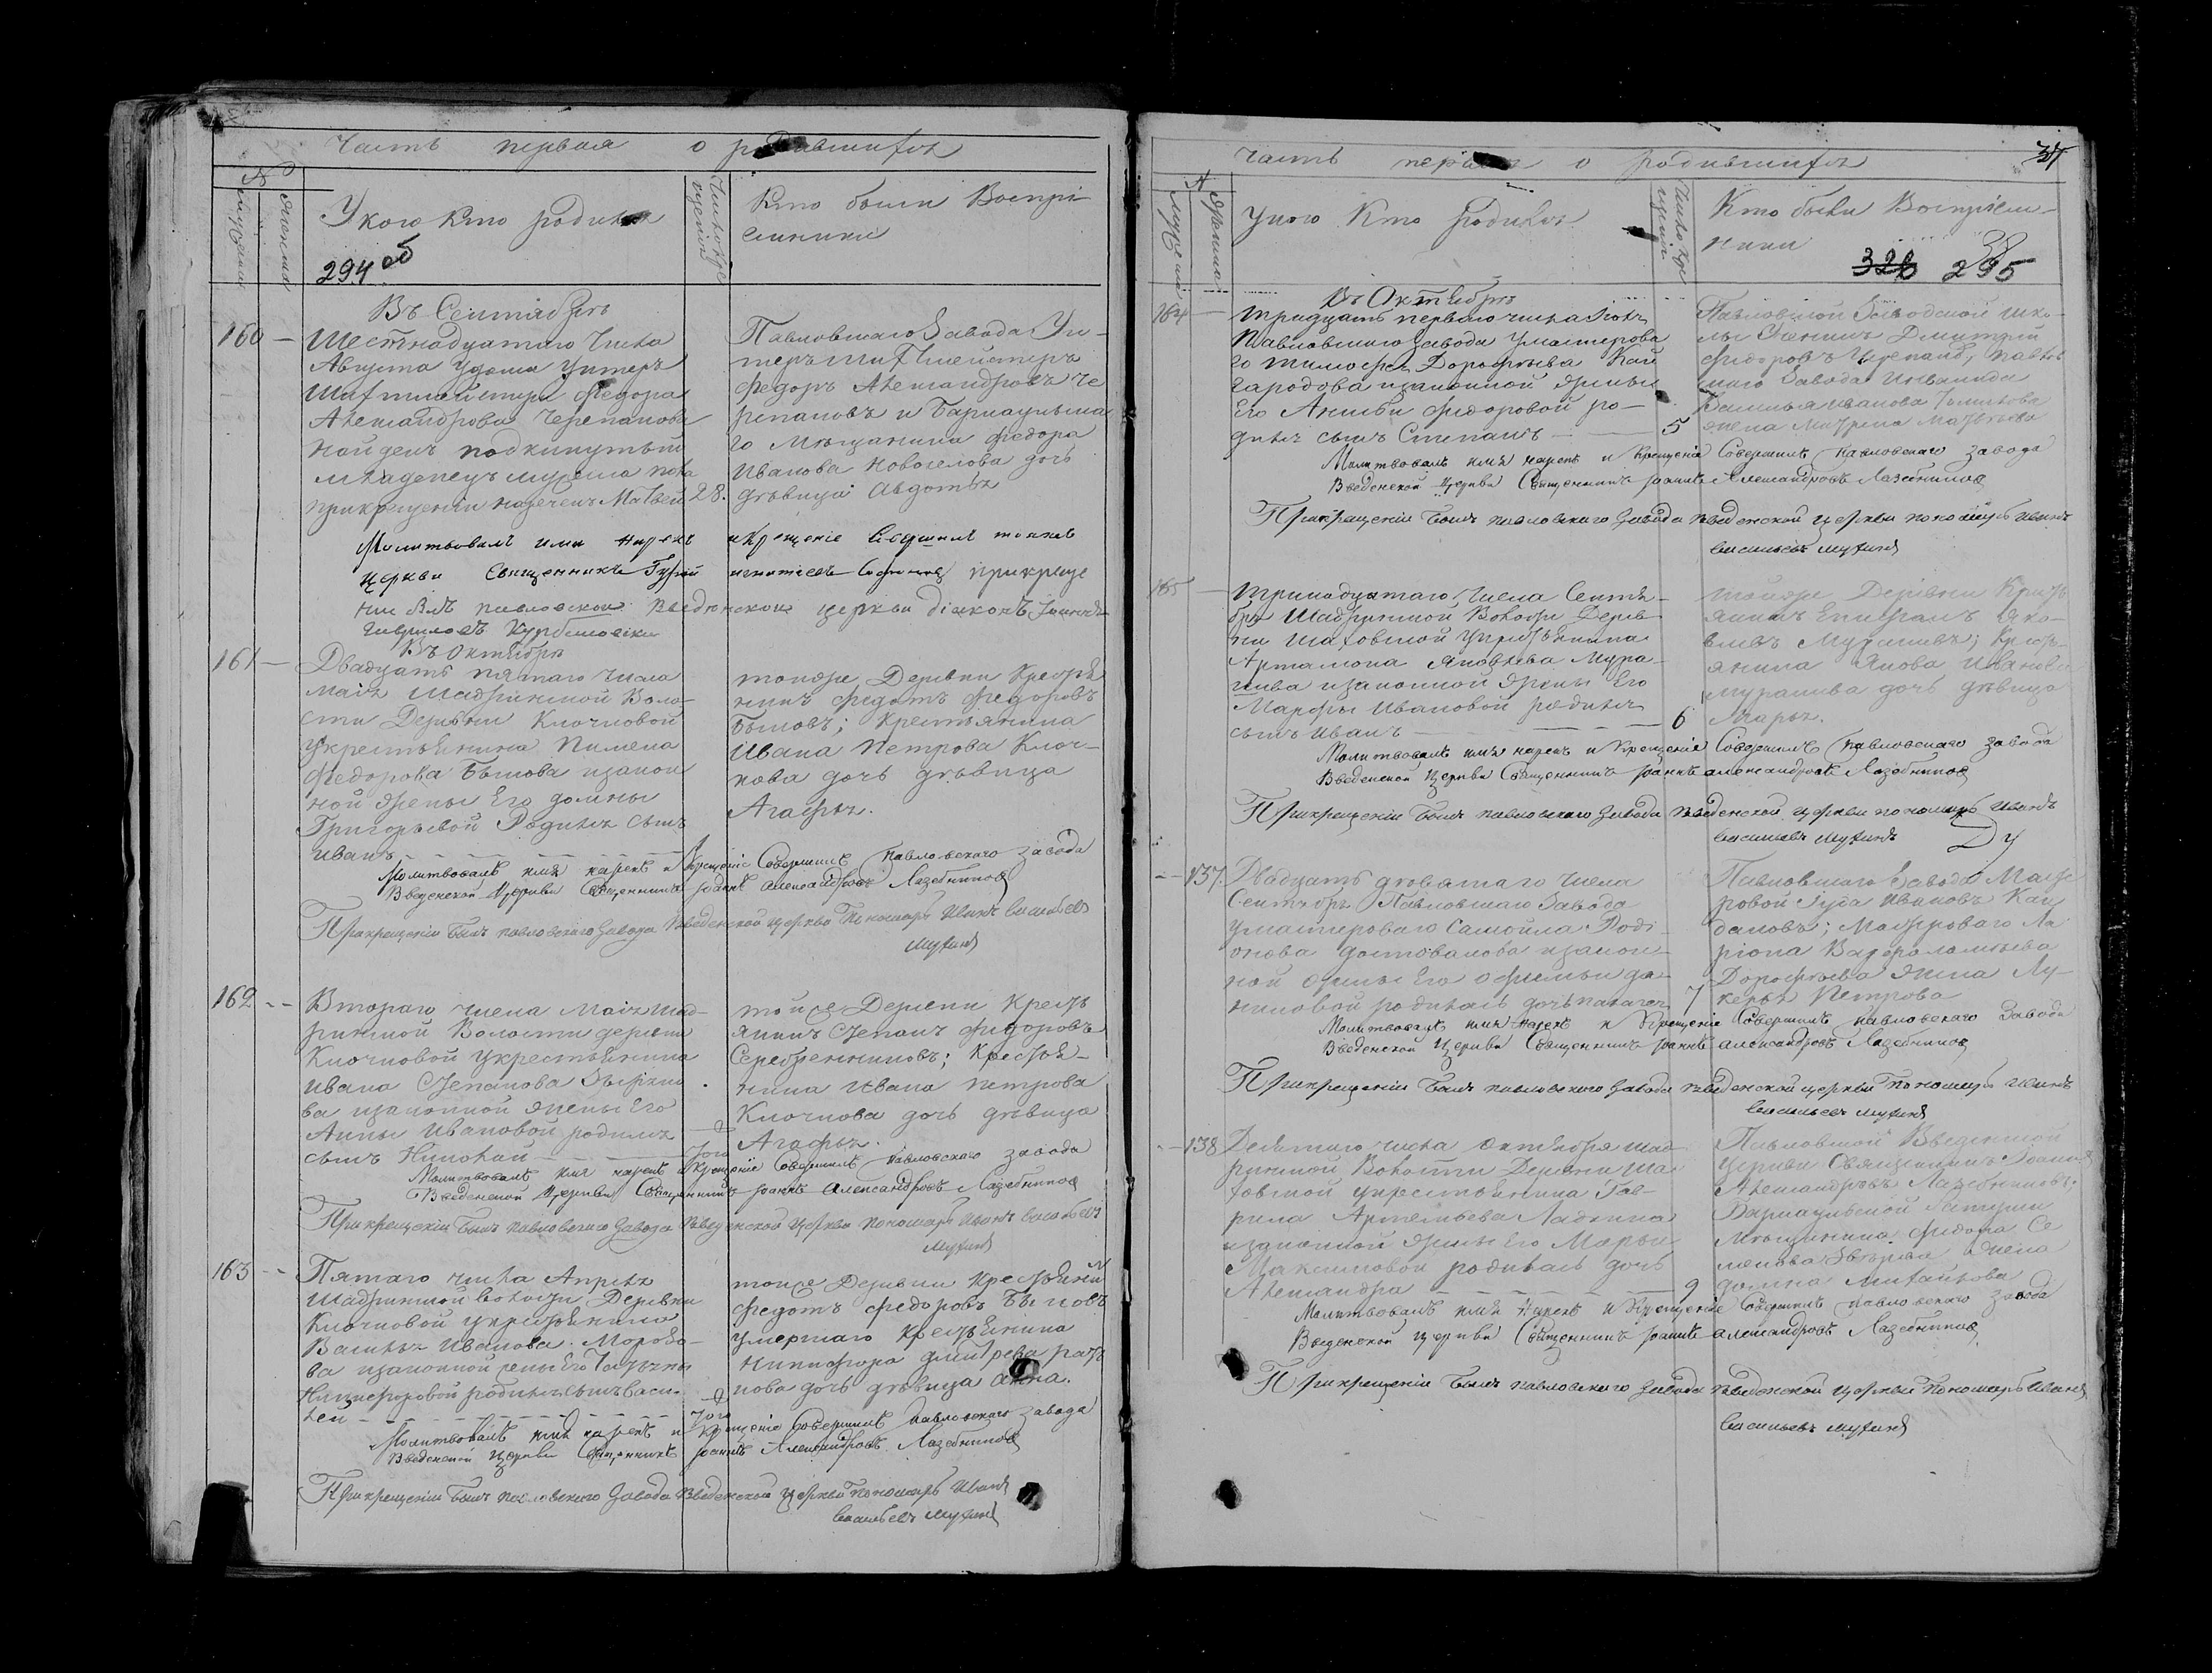 Часть первая о родившихся
№
Мужеска
Женска
У кого кто родился
Число крещения
Кто были Воспрі
емники
294 об
Въ Сентябрѣ
160 — Шестнадцатаго числа
Августа Удома Унтеръ
Шихтмейстера Федора
Александрова Черепанова
найденъ подкинутый
младенецъ мужеска пола
прикрещеніи нареченъ Матвей 28.
Павловскаго Завода Ун-
теръ Шихтмейстеръ
Федоръ Александровъ Че
репановъ и Барнаульска
го Мѣщанина Федора
Иванова Новоселова дочь
дѣвица Авдотья
Молитвовалъ имя нарекъ и крещеніе Совершилъ тояже
церкви Священникъ Гурій прикреще
ніи былъ павловской Введенской церкви діаконъ Іоаннъ
Гавриловъ
Въ Октябрѣ
161 — Двадцать пятаго числа
маія Шадринской Воло-
сти Деревни Клочковой
Укрестьянина Пимена
Федорова Быкова изакон
ной жены Его домны
Григорьевой Родился сынъ
Иванъ
тояже Деревни Крестья
нинъ Федотъ Федоровъ
Быковъ; Крестьянина
Ивана Петрова Клоч-
кова дочь дѣвица
Агафья.
Молитвовалъ имя нарекъ и Крещеніе Совершилъ Павловскаго завода
Введенской Церкви Священникъ Іоаннъ Александровъ Лазебников
Прикрещеніи былъ павловскаго Завода Введенской церкви Пономарь Иванъ Васильевъ
Мухин
162 - - Втораго числа Маія Шад-
ринской Волости деревни
Клочковой укрестьянина
Ивана Степанова Звѣрки
ва изаконной жены Его
Анны Ивановой родился
сынъ Николай
той же Деревни Кресть
янинъ Степанъ Федоровъ
Серебренниковъ; Крестья-
нина Ивана петрова
Клочкова дочь дѣвица
Агафья.
Молитвовалъ имя нарекъ и Крещеніе Совершилъ Павловскаго завода
Введенской Церкви Священникъ Іоаннъ Александровъ Лазебников
Прикрещеніи былъ павловскаго Завода Введенской церкви пономарь Иванъ Васильевъ
Мухин
163 - - Пятаго числа Апрѣля
Шадринской волости Деревни
Клочковой укрестьянина
Василья Иванова Морозо-
ва изаконной жены Его Татьяны
Никифоровой родился сынъ Васи-
лей
тойже Деревни Крестьянинъ
Федотъ Федоровъ Быковъ
умершаго Крестьянина
Никифора Дмитрева
кова дочь дѣвица Анна.
Молитвовалъ имя нарекъ и Крещеніе Совершилъ Павловскаго завода
Введенской Церкви Священникъ Іоаннъ Александровъ Лазебников
Прикрещеніи былъ павловскаго Завода Введенской церкви Пономарь Иванъ
Васильевъ Мухин
Часть первая о родившихся
37
№
Мужеска
Женска
У кого Кто родился
Число кре
щенія
Кто были Воспріем-
ники
326 295
38
Въ Октябрѣ
164 — тридцать перваго числа Іюля
Павловскаго завода Умастерова
го Тимофея Дорофѣева Кай
городова изаконной жены
Его Анисьи Федоровой ро-
дился сынъ Степанъ — 5
Павловской Заводской шко-
лы Ученикъ Дмитрій
Федоровъ Черепановъ; павлов
скаго Завода Инвалида
Василья Иванова
жена Матрена Матвѣева
Молитвовалъ имя нарекъ и Крещеніе Совершилъ Павловскаго завода
Введенской Церкви Священникъ Іоаннъ Александровъ Лазебников
Прикрещеніи былъ павловскаго Завода Введенской церкви пономарь Иванъ
Васильевъ Мухин
165 — тринадцатаго числа Сентя-
бря Шадринской Волости Дерев
ни Шаховской Укрестьянина
Артамона Яковлева Мура-
шева изаконной жены Его
Марфы Ивановой родился
сынъ Иванъ — 6
тойже Деревни Кресть
янинъ Епифанъ Яко-
влевъ Мурашевъ; Кресть-
янина Якова Иванова
Мурашева дочь дѣвица
Марья.
Молитвовалъ имя нарекъ и Крещеніе Совершилъ Павловскаго завода
Введенской Церкви Священникъ Іоаннъ Александровъ Лазебников
Прикрещеніи былъ павловскаго Завода Введенской церкви пономарь Иванъ
Васильевъ Мухинъ
- - 137. Двадцать девятаго числа
Сентября Павловскаго Завода
умастероваго Самойла Роді-
онова изакон-
ной жены Его Офимьи да-
ниловой родилась дочь пелагея 7
Павловскаго Завода Масте
ровой Іуда Ивановъ Кай
дановъ; Мастероваго Ла
ріона Варфоломѣева
Дорофѣева жена Лу-
керья Петрова
Молитвовалъ имя нарекъ и Крещеніе Совершилъ павловскаго Завода
Введенской Церкви Священникъ Іоаннъ Александровъ Лазебников
Прикрещеніи былъ павловскаго Завода Введенской церкви Пономарь Иванъ
Васильевъ Мухин
- - 138 Девятаго числа Октября Шад
ринской Волости Деревни Ша
ховской укрестьянина Гав-
рила Артемьева Ладкина
изаконной жены Его Марьи
Максимовой родилась дочь
Александра — 9
Павловской Введенской
Церкви Священникъ Іоаннъ
Александровъ Лазебниковъ;
Барнаульской
Мѣщанина Федора Се
менова Звѣрева жена
домна Михайлова
Молитвовалъ имя нарекъ и Крещеніе Совершилъ павловскаго завода
Введенской Церкви Священникъ Іоаннъ Александровъ Лазебников
Прикрещеніи былъ павловскаго Завода Введенской церкви Пономарь Иванъ
Васильевъ Мухин